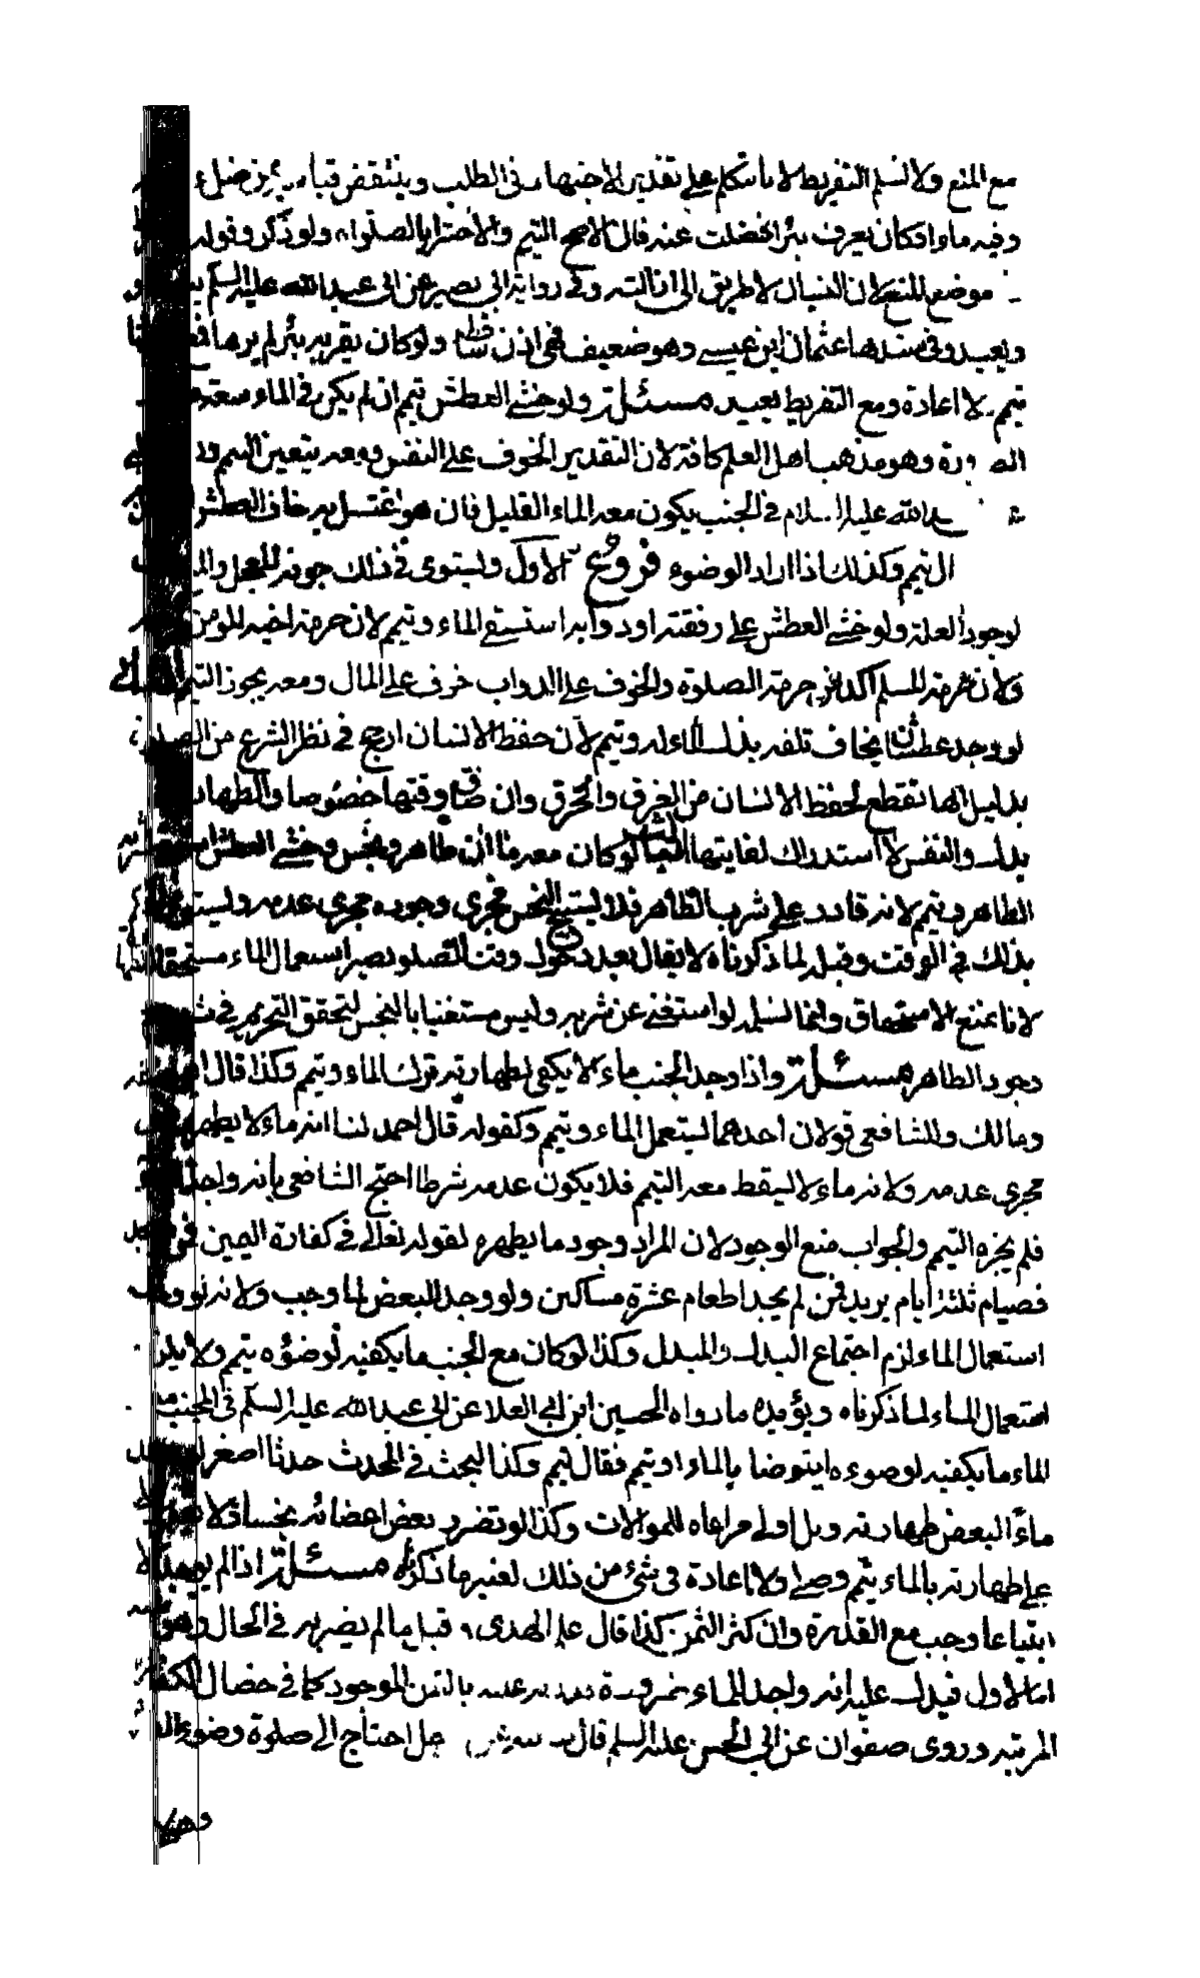 مع المنع ولا نسلم التفريط لانا نتكلم على تقدير الاجتهاد فى الطلب وينتقض قياسه بمن ضل
وفيه ماء او كان يعرف بئرا فضلت عنه قال الاصح التيمم والاجتزاء بالصلوة ولو ذكر وقوله
موضع المنع لان النسيان لا طريق الى ازالته وفى رواية ابى بصير عن ابى عبد الله عليه السلم
ويعيد وفى سندها عثمان ابن عيسى وهو ضعيف فهى اذن ساقط ولو كان بقربه بئر لم يرها
تيمم ولا اعادة ومع التفريط يعيد مسئلة ولو خشى العطش تيمم ان لم يكن فى الماء سعة
وهو مذهب اهل العلم كافة لان التقدير الخوف على النفس ومعه يتعين التيمم
عبد الله عليه السلام فى الجنب يكون معه الماء القليل فان هو اغتسل به خاف العطش
التيمم وكذلك اذا اراد الوضوء فروع الاول ويستوى فى ذلك
لوجود العلة ولو خشى العطش على رفقته او دوابه استبقى الماء وتيمم لان حرمة اخيه المؤمن
ولان حرمة المسلم اكد من حرمة الصلوة والخوف على الدواب خوف على المال ومعه يجوز التيمم
لو وجد عطشانا يخاف تلفه بذل الماء له وتيمم لان حفظ الانسان ارجح فى نظر الشرع من الصلوة
بدليل انها تقطع لحفظ الانسان من الغرق والحرق وان ضاق وقتها خصوصا والطهارة
بدل والنفس لا استدراك لفايتها لو كان معه ماءان طاهر ونجس وخشى العطش
الطاهر وتيمم لانه قادر على شرب الطاهر فلا يستبيح النجس فجرى وجوده مجرى عدمه ويستوى
بذلك فى الوقت وقبله لما ذكرناه لا يقال بعد دخول وقت الصلوة يصير استعمال الماء مستحقا
لانا نمنع الاستحقاق وانما نسلمه لو استغنى عن شربه وليس مستغنيا بالنجس لتحقق التحريم فى
وجود الطاهر مسئلة واذا وجد الجنب ماء لا يكفى لطهارته ترك الماء وتيمم وكذا قال
ومالك وللشافعى قولان احدهما يستعمل الماء ويتيمم وكقوله قال احمد لنا انه ماء لا يطهره
مجرى عدمه ولانه ماء لا يسقط معه التيمم فلا يكون عدمه شرطا احتج الشافعى بانه واجد
فلم يجزه التيمم والجواب منع الوجود لان المراد وجود ما يطهره لقوله تعالى فى كفارة اليمين
فصيام ثلثة ايام يريد فمن لم يجد اطعام عشرة مساكين ولو وجد البعض لما وجب ولانه لو وجب
استعمال الماء لزم اجتماع البدل والمبدل وكذا لو كان مع الجنب ما يكفيه لوضوئه تيمم ولا يلزم
استعمال الماء لما ذكرناه ويؤيده ما رواه الحسين ابن ابى العلا عن ابى عبد الله عليه السلم فى الجنب معه
الماء ما يكفيه لوضوءه ايتوضا بالماء او تيمم فقال تيمم وكذا البحث فى المحدث حدثا اصغر
ماء لبعض طهارته وبل اولى مراعاه للموالات وكذا لو تضرر بعض اعضائه
على طهارته بالماء تيمم وصلى ولا اعادة فى شئ من ذلك لعين ما ذكرناه مسئلة اذا لم يوجد الا
ابتياعا وجب مع القدرة وان كثر الثمن كذا قال علم الهدى وقيل ما لم يضر به فى الحال وهو
اما الاول فيدل عليه انه واجد للماء بالثمن الموجود كما فى خصال
المرتبه وروى صفوان عن ابى الحسن عليه السلم قال رجل احتاج الى صلوة وضوء